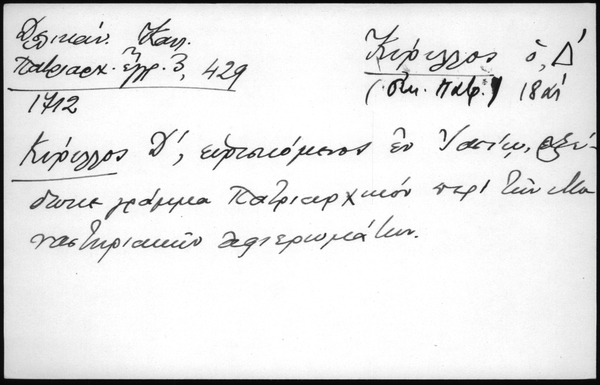 Δελικάν. Καλ.
Πατριαρχ. ἔγγρ. 3, 429
1712
Κύριλλος ὁ, Δ΄
(Οἰκ. Πατρ.) 18 αἰ
Κύριλλος Δ΄, εὑρισκόμενος ἐν Ἰασίῳ, ἐξέ-
δωκε γράμμα Πατριαρχικόν περί τῶν Μο
ναστηριακῶν ἀφιερωμάτων.